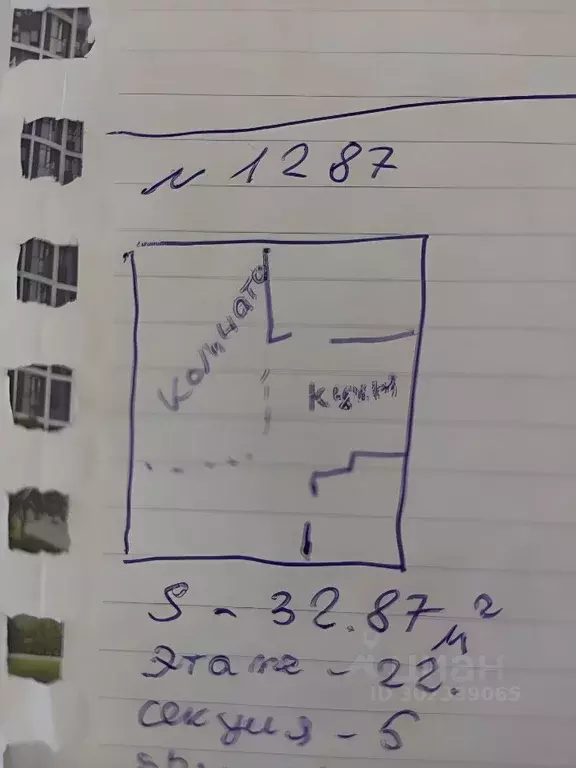 N 1287
Комната
кухн
S - 32.87 м²
Этаж - 22.
секция - 5
циан
ID 307329065